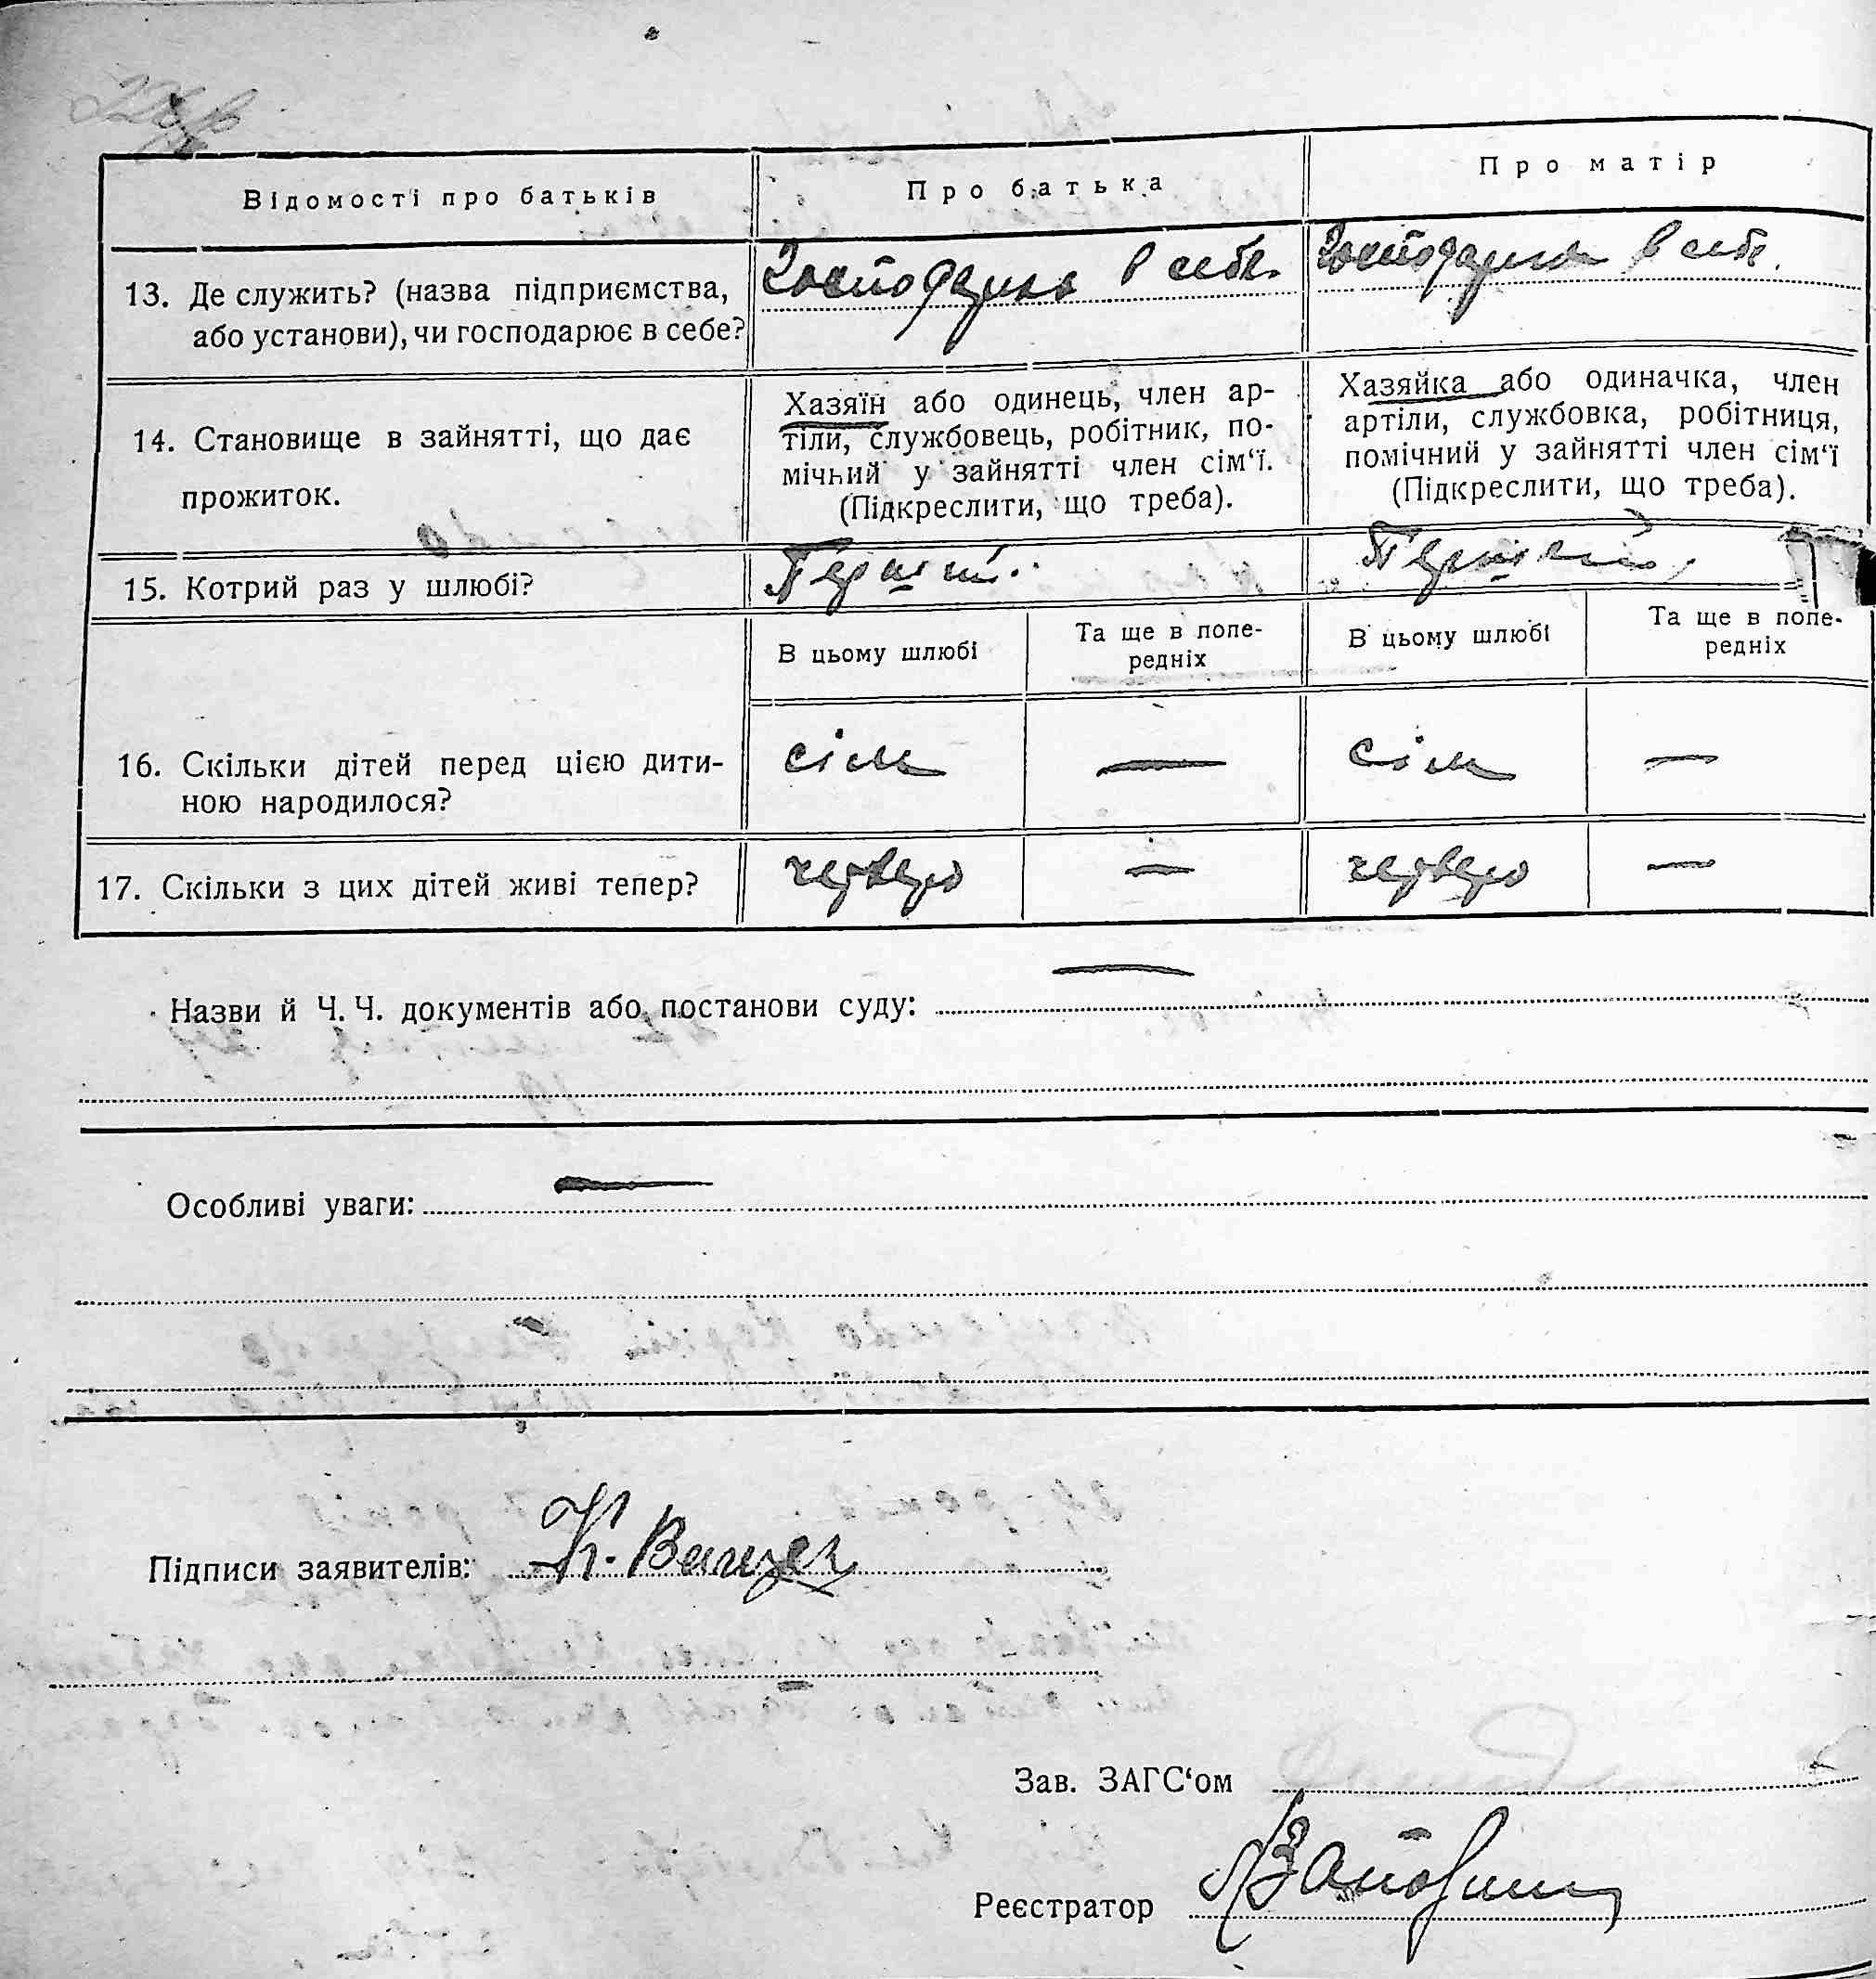 Відомості про батьків
Про батька
Про матір
13. Де служить? (назва підприємства,
або установи), чи господарює в себе?
в себе.
в себе.
14. Становище в зайнятті, що дає
прожиток.
Хазяїн або одинець, член ар-
тіли, службовець, робітник, по-
мічний у зайнятті член сім‘ї.
(Підкреслити, що треба).
Хазяйка або одиначка, член
артіли, службовка, робітниця,
помічний у зайнятті член сім‘ї
(Підкреслити, що треба).
15. Котрий раз у шлюбі?
Перший.
Перший
В цьому шлюбі
Та ще в попе-
редніх
В цьому шлюбі
Та ще в попе-
редніх
16. Скільки дітей перед цією дити-
ною народилося?
сім
—
сім
—
17. Скільки з цих дітей живі тепер?
четверо
—
четверо
—
Назви й Ч. Ч. документів або постанови суду: —
Особливі уваги: —
Підписи заявителів: К.
Зав. ЗАГС‘ом
Реєстратор